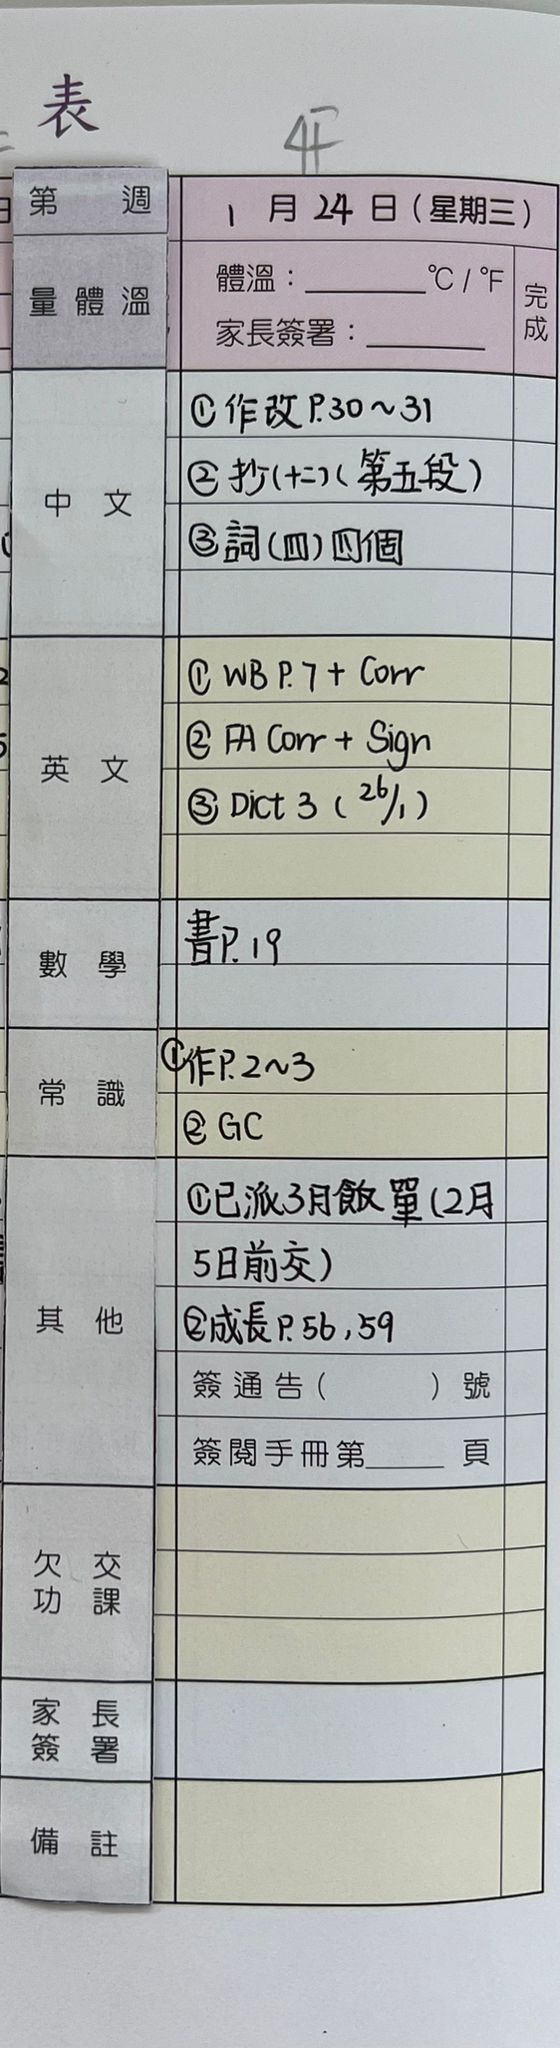 表
4F
第 週
1 月 24 日（星期三）
量體溫
體溫：______°C / °F
家長簽署：______
完成
中文
① 作改 P.30~31
② 抄(十二)(第五段)
③ 詞(四)四個
英文
① WB P.7 + Corr
② FA Corr + Sign
③ Dict 3 (26/1)
數學
書P.19
常識
①作P.2~3
② GC
其他
①已派3月飯單(2月
5日前交)
②成長P.56,59
簽通告（ ）號
簽閱手冊第____頁
欠交
功課
家長
簽署
備註